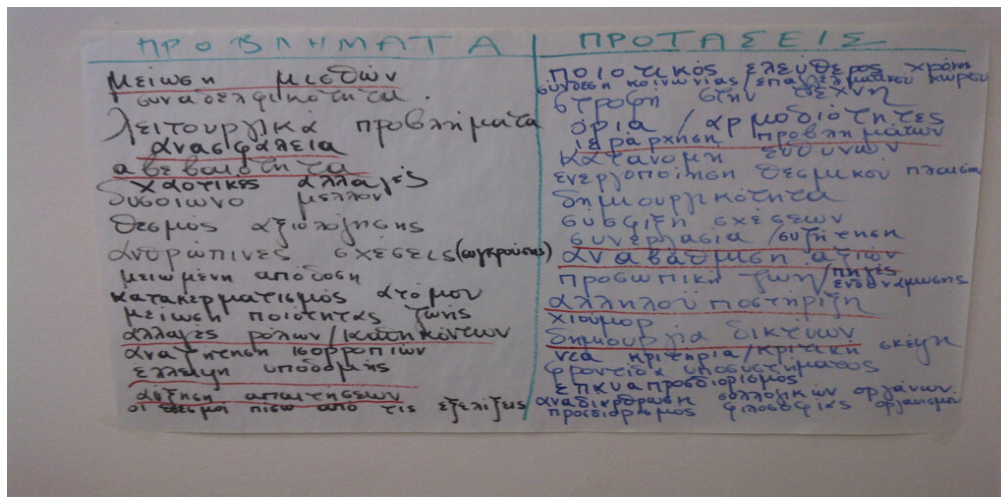 ΠΡΟΒΛΗΜΑΤΑ
μείωση μισθών
συναδελφικότητα.
λειτουργικά προβλήματα
ανασφάλεια
αβεβαιότητα
χαοτικές αλλαγές
δυσοίωνο μέλλον
θεσμός αξιολόγησης
ανθρώπινες σχέσεις (συγκρούσεις)
μειωμένη απόδοση
κατακερματισμός ατόμου
μείωση ποιότητας ζωής
αλλαγές ρόλων/καθηκόντων
αναζήτηση ισορροπιών
έλλειψη υποδομής
αύξηση απαιτήσεων
οι θεσμοί πίσω από τις εξελίξεις
ΠΡΟΤΑΣΕΙΣ
ποιοτικός ελεύθερος χρόνος
σύνδεση κοινωνίας/επαγγελματικού χώρου
στροφή στην τέχνη
όρια/αρμοδιότητες
ιεράρχηση προβλημάτων
κατανομή ευθυνών
ενεργοποίηση θεσμικού πλαισίου
δημιουργικότητα
σύσφιξη σχέσεων
συνεργασία/συζήτηση
αναβάθμιση
προσωπική ζωή/πηγές ενδυνάμωσης
αλληλουποστήριξη
χιούμορ
δημιουργία δικτύων
νέα κριτήρια/κριτική σκέψη
φροντίδα υποσυστήματος
επαναπροσδιορισμός
αναδιάρθρωση συλλογικών οργάνων.
προσδιορισμός φιλοσοφίας